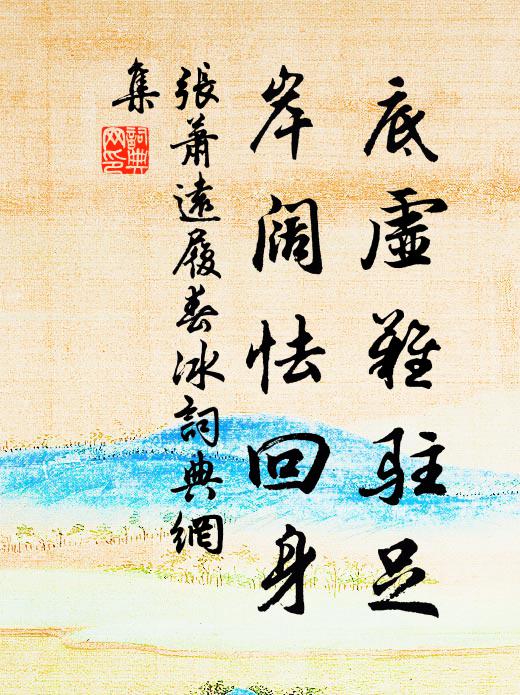 底虛難駐足
岸闊怯回身
張蕭遠履春冰詞典網
集
詞典
网印